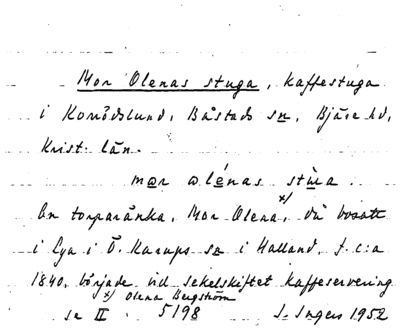 Mor Olenas stuga, kaffestuga
i Korrödslund, Båstads sn, Bjäre hd,
Krist. län.
mɑr ɷlénas stùɑ.
En torparänka, Mor Olena, x/ då bosatt
i Lya i Ö. Karups sn i Halland, f. c:a
1840, började vid sekelskiftet kaffeservering
x/ Olena Bergström
se II 5198 I. Ingers 1952